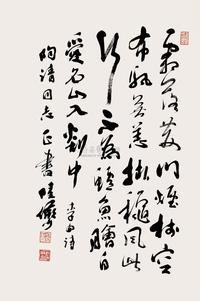 霜落荆门烟树空
布帆无恙挂秋风此
行不为鲈鱼脍自
爱名山入剡中 李白诗
陶清同志正书